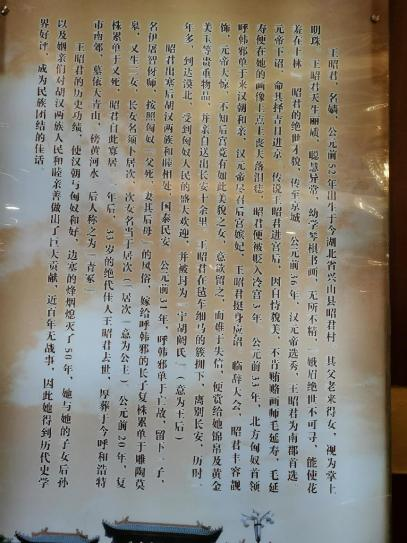 王昭君，名嫱，公元前52年出生于今湖北省兴山县昭君村 其父老来得女，视为掌上
明珠，王昭君天生丽质，聪慧异常，幼学琴棋书画，无所不精，"娥眉绝世不可寻，能使花
羞在上林"，昭君的绝世才貌，传至京城，公元前36年，汉元帝选秀，王昭君为南郡首选
元帝下诏，命其择吉日进京，传说王昭君进宫后，因自恃貌美，不肯贿赂画师毛延寿，毛延
寿便在她的画像上点上丧夫落泪痣，昭君便被贬入冷宫3年，公元前33年，北方匈奴首领
呼韩邪单于来汉朝和亲，汉元帝尽召后宫嫔妃，王昭君挺身应诏，临辞大会，昭君丰容靓
饰，元帝大惊，不知后宫竟有如此美貌之女，意欲留之，而难于失信，便赏给她锦帛及黄金
美玉等贵重物品，并亲自送出长安十余里，王昭君在毡车细马的簇拥下，离别长安，历时一
年多，到达漠北，受到匈奴人民的盛大欢迎，并被封为"宁胡阏氏"（意为王后）
昭君出塞后胡汉两族和睦相处 国泰民安 公元前31年，呼韩邪单于亡故，留下一子，
名伊屠智伢师，按照匈奴"父死，妻其后母"的风俗，嫁给呼韩邪的长子复株累单于雕陶莫
皋，又生二女，长女名须卜居次，次女名当于居次（"居次"意为公主）公元前20年，复
株累单于又死，昭君自此寡居一年后，33岁的绝代佳人王昭君去世，厚葬于今呼和浩特
市南郊，墓依大青山、傍黄河水，后人称之为"青冢"
王昭君的历史功绩，使汉朝与匈奴和好，边塞的烽烟熄灭了50年，她与她的子女后孙
以及姻亲们对胡汉两族人民和睦亲善做出了巨大贡献，近百年无战事，因此她得到历代史学
界好评，成为民族团结的佳话。